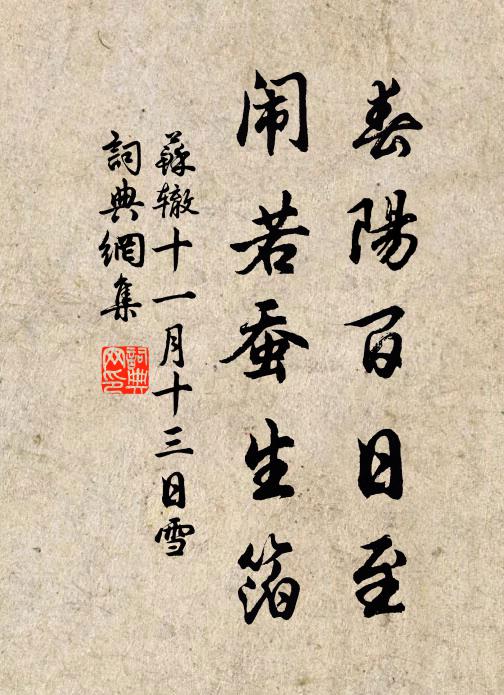 春陽百日至
闹若蚕生箔
蘇辙十一月十三日雪
詞典網集
詞典
网印